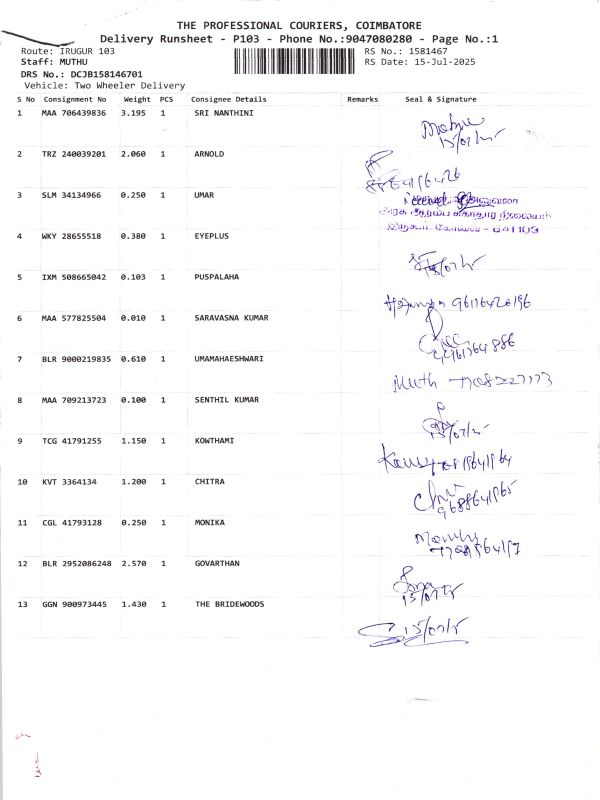 THE PROFESSIONAL COURIERS, COIMBATORE
Delivery Runsheet - P103 - Phone No.:9047080280 - Page No.:1
Route: IRUGUR 103 RS No.: 1581467
Staff: MUTHU RS Date: 15-Jul-2025
DRS No.: DCJB158146701
Vehicle: Two Wheeler Delivery
S No Consignment No Weight PCS Consignee Details Remarks Seal & Signature
1 MAA 706439836 3.195 1 SRI NANTHINI
15/07/25
2 TRZ 240039201 2.060 1 ARNOLD
3 SLM 34134966 0.250 1 UMAR
அரசு ஆரம்ப சுகாதார நிலையம்
இருகூர், கோவை - 641103
4 WKY 28655518 0.380 1 EYEPLUS
5 IXM 508665042 0.103 1 PUSPALAHA
6 MAA 577825504 0.010 1 SARAVASNA KUMAR
7 BLR 9000219835 0.610 1 UMAMAHAESHWARI
Muth
8 MAA 709213723 0.100 1 SENTHIL KUMAR
15/07/25
9 TCG 41791255 1.150 1 KOWTHAMI
10 KVT 3364134 1.200 1 CHITRA
9688641965
11 CGL 41793128 0.250 1 MONIKA
12 BLR 2952086248 2.570 1 GOVARTHAN
15/07/25
13 GGN 900973445 1.430 1 THE BRIDEWOODS
15/07/25